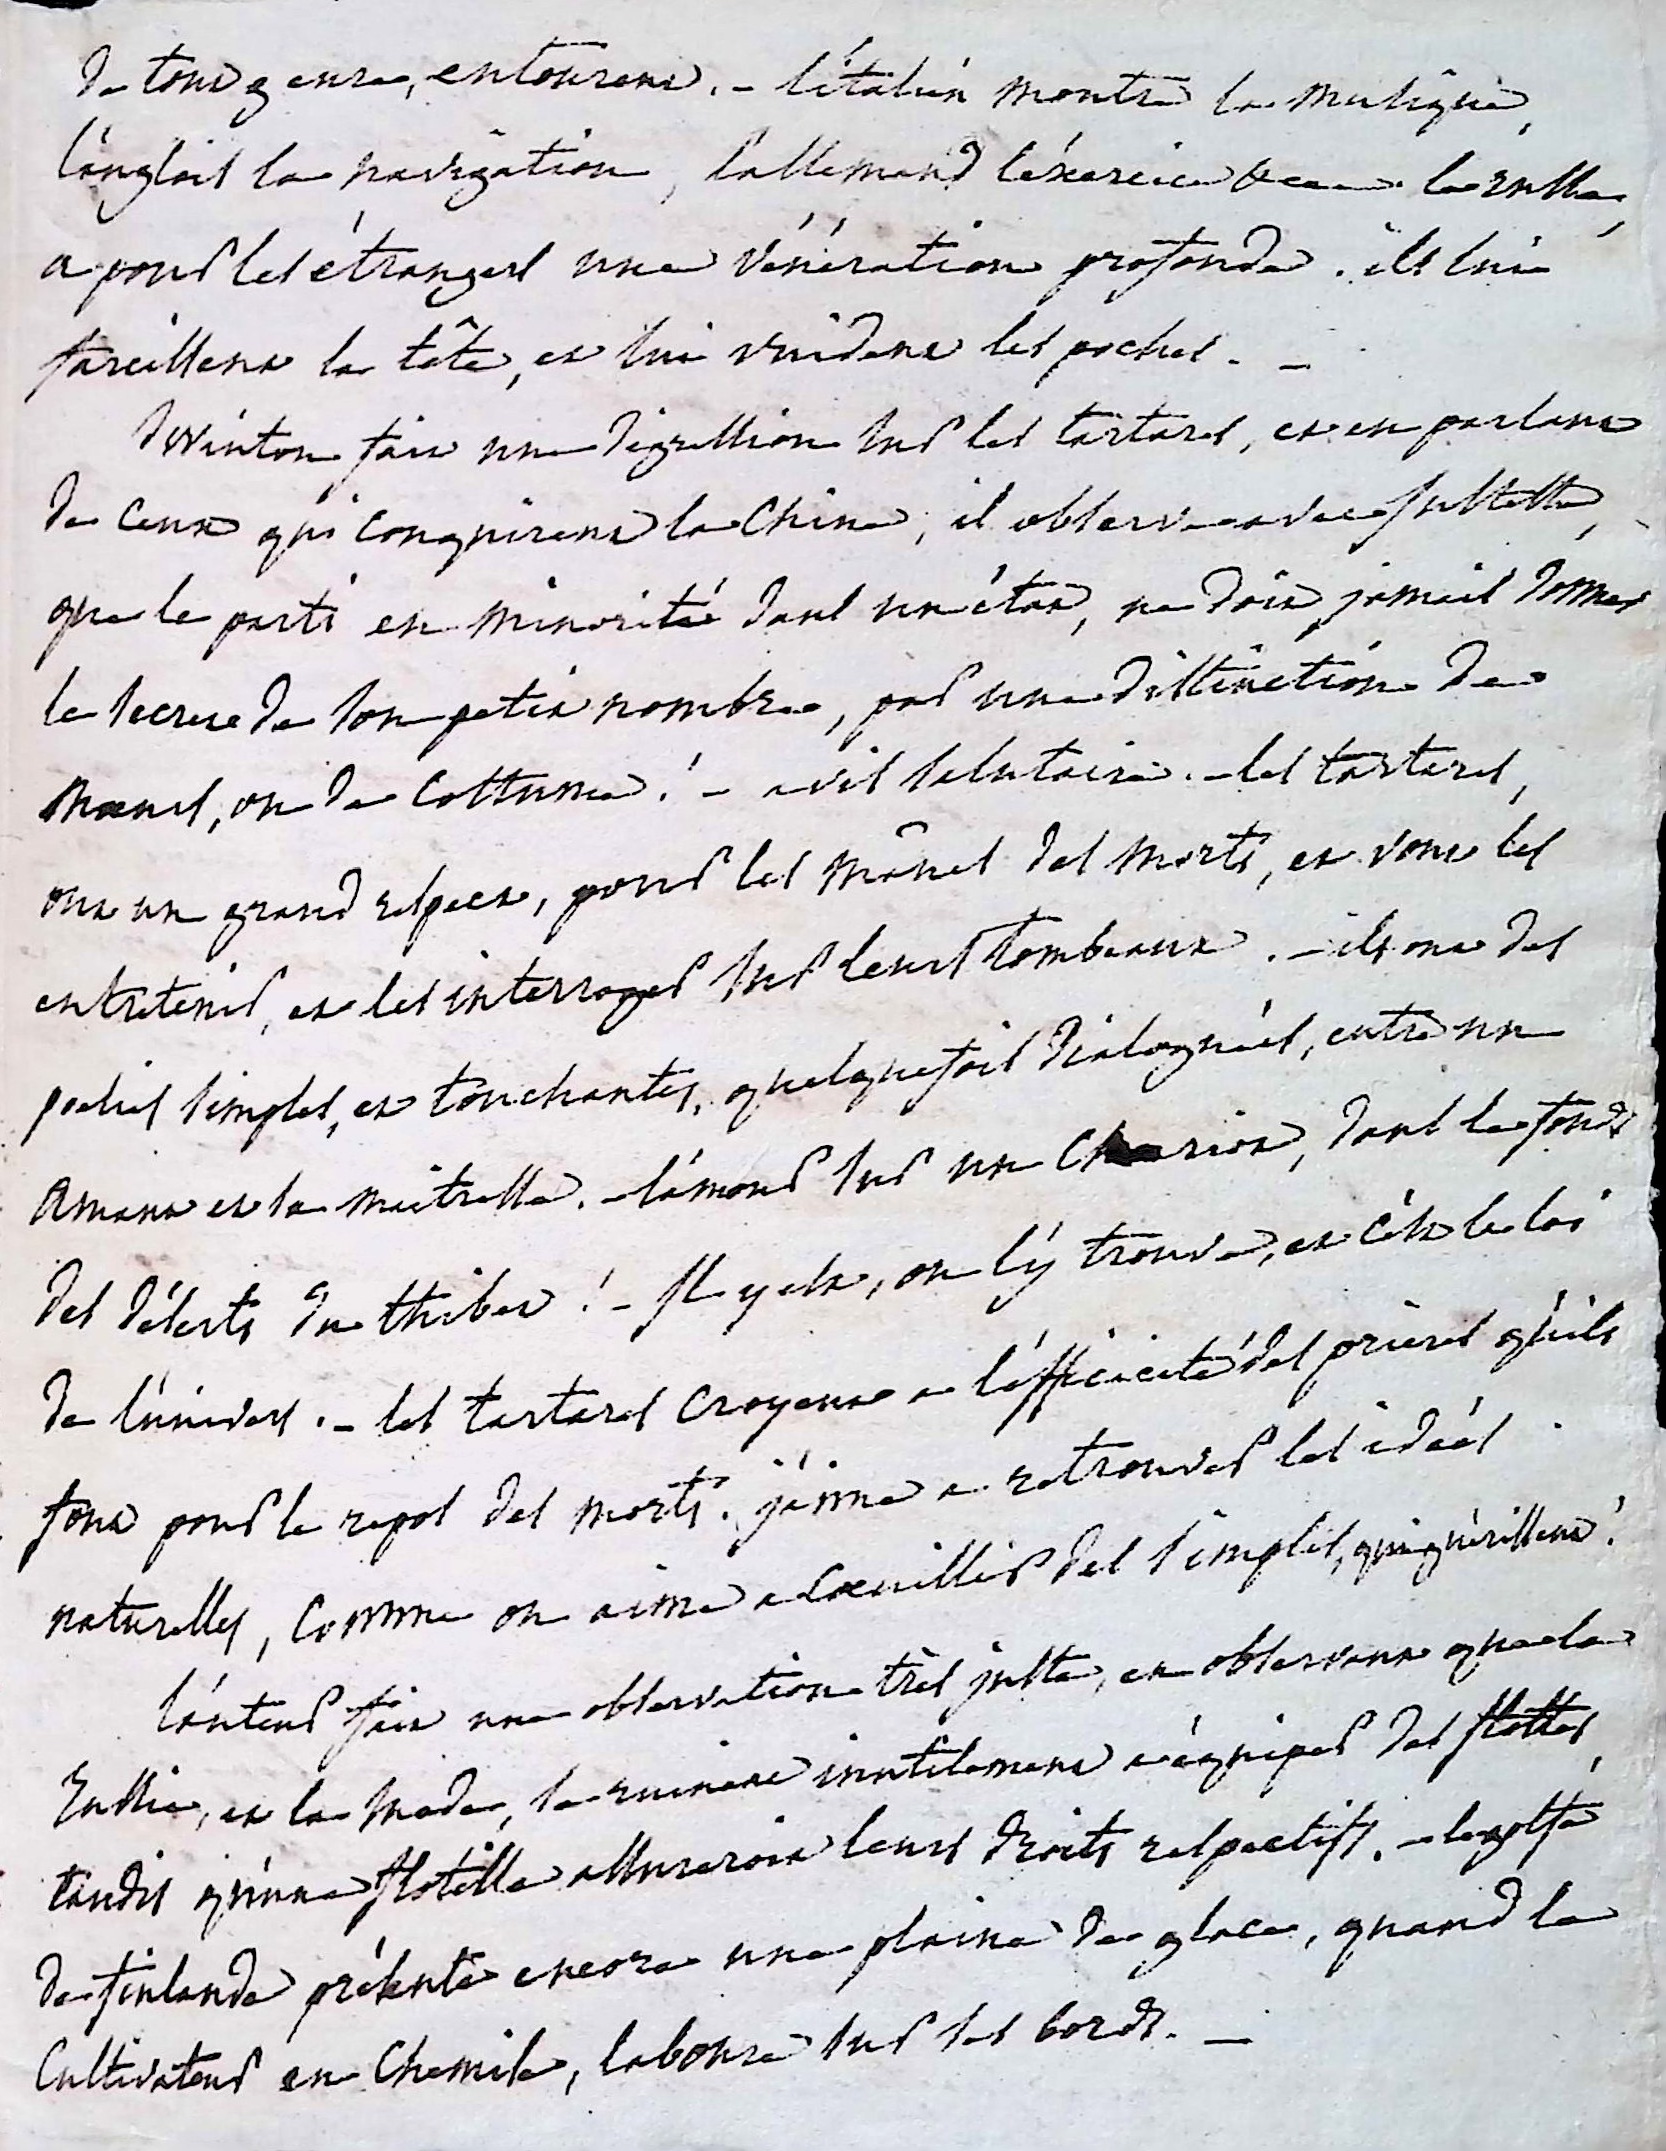 de tout genre, entourent. - l'italien montre la musique,
l'anglais la navigation, l'allemand l'éxercice &c. le russe,
a pour les étrangers une vénération profonde. ils lui
farcissent la tête, et lui vuident les poches. -
Swinton fait une digression sur les tartares, et en parlant
de ceux qui conquirent la Chine, il observe avec justesse,
que le parti en minorité dans un état, ne doit jamais donner
le secret de son petit nombre, par une distinction de
moeurs, ou de costume ! - avis salutaire. - les tartares,
ont un grand respect, pour les mânes des morts, et vont les
entretenir, et les interroger sur leurs tombeaux. - ils ont des
poésies simples, et touchantes, quelquefois dialoguées, entre un
amant et sa maitresse. - l'amour sur un chariot, dans le fonds
des déserts du thibet ! - Il y est, on l'y trouve, et c'est la loi
de l'univers. - les tartares croyent a l'éfficacité des prières qu'ils
font pour le repos des morts. j'aime a retrouver les idées
naturelles, comme on aime a coeuillir des simples, qui guérissent !
l'auteur fait une observation très juste, en observant que la
russie, et la suede, se ruinent inutilement a équiper des flottes,
tandis qu'une flotille assureroit leurs droits respectifs. - le golfe
de finlande présente encore une plaine de glace, quand le
cultivateur en chemise, laboure sur ses bords. -